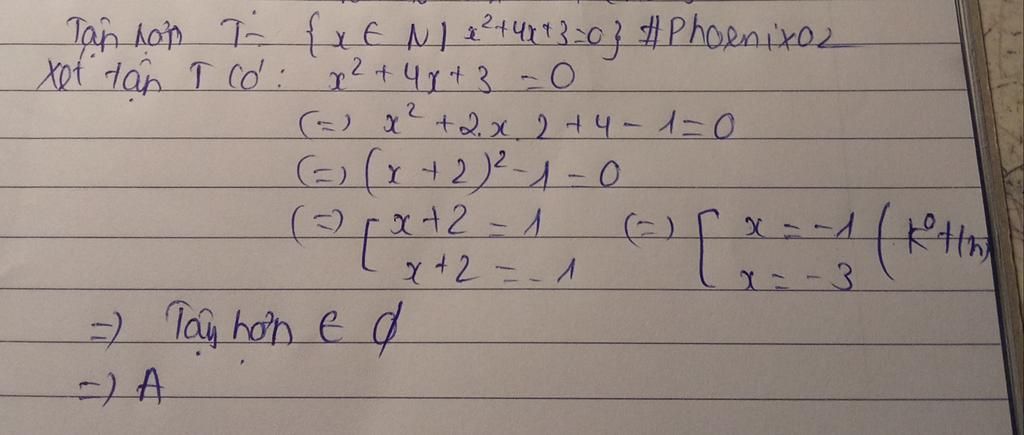 Tập hợp T = {x ∈ N | x² + 4x + 3 = 0} #Phoenix02
Xét tập T có: x² + 4x + 3 = 0
(=) x² + 2.x.2 + 4 - 1 = 0
(=) (x + 2)² - 1 = 0
(=) [ x + 2 = 1 (=) [ x = -1 (k° t/m)
x + 2 = -1 x = -3
=) Tập hợp ∈ ∅
=) A